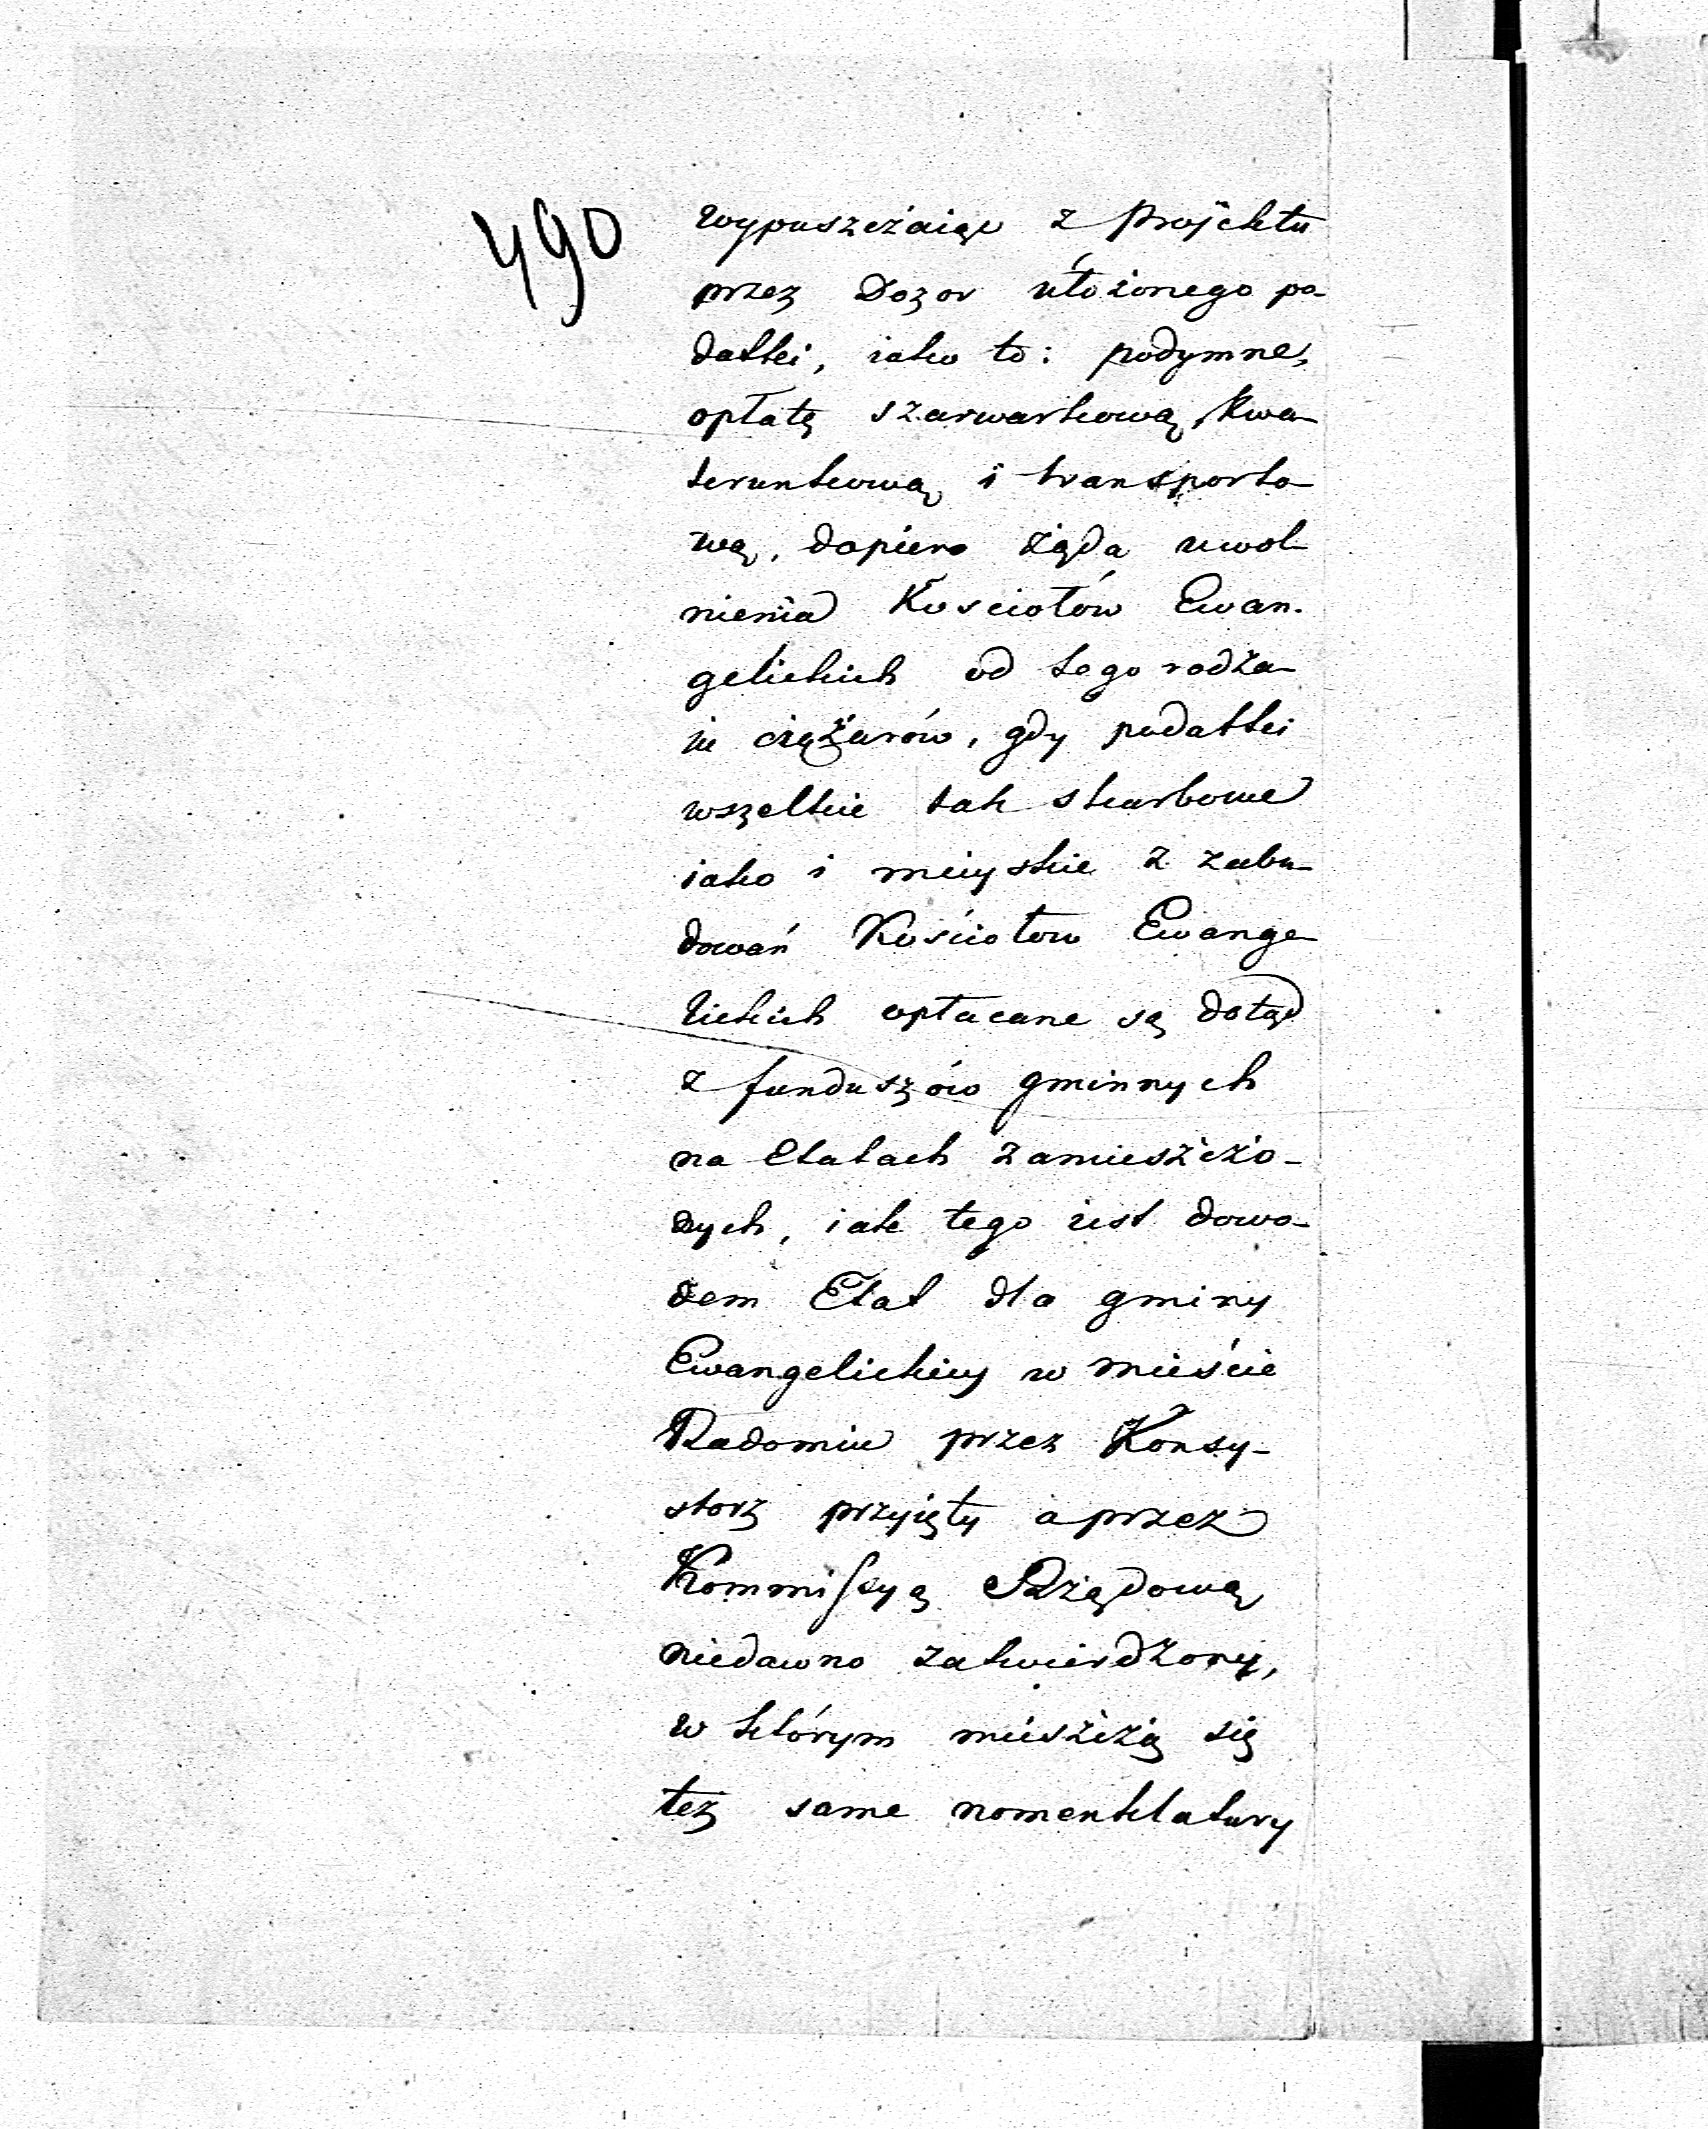 490
wypuszczaiąc z projektu
przez Dozor ułożonego po-
datki, iako to: podymne,
opłatę szarwarkową, kwa-
terunkową i transporto-
wą, dopiero żąda uwol-
nienia Kosciołów Ewan-
gelickich od tego rodza-
iu ciężarów, gdy podatki
wszelkie tak skarbowe
iako i mieyskie z zabu-
dowań Kościołow Ewange-
lickich opłacane są dotąd
z funduszów gminnych
na etatach zamieszczo-
nych, iak tego iest dowo-
dem Etat dla gminy
Ewangelickiey w mieście
Radomiu przez Konsy-
storz przyięty a przez
Kommissyą Rządową
niedawno zatwierdzony,
w którym mieszczą się
też same nomenklatury